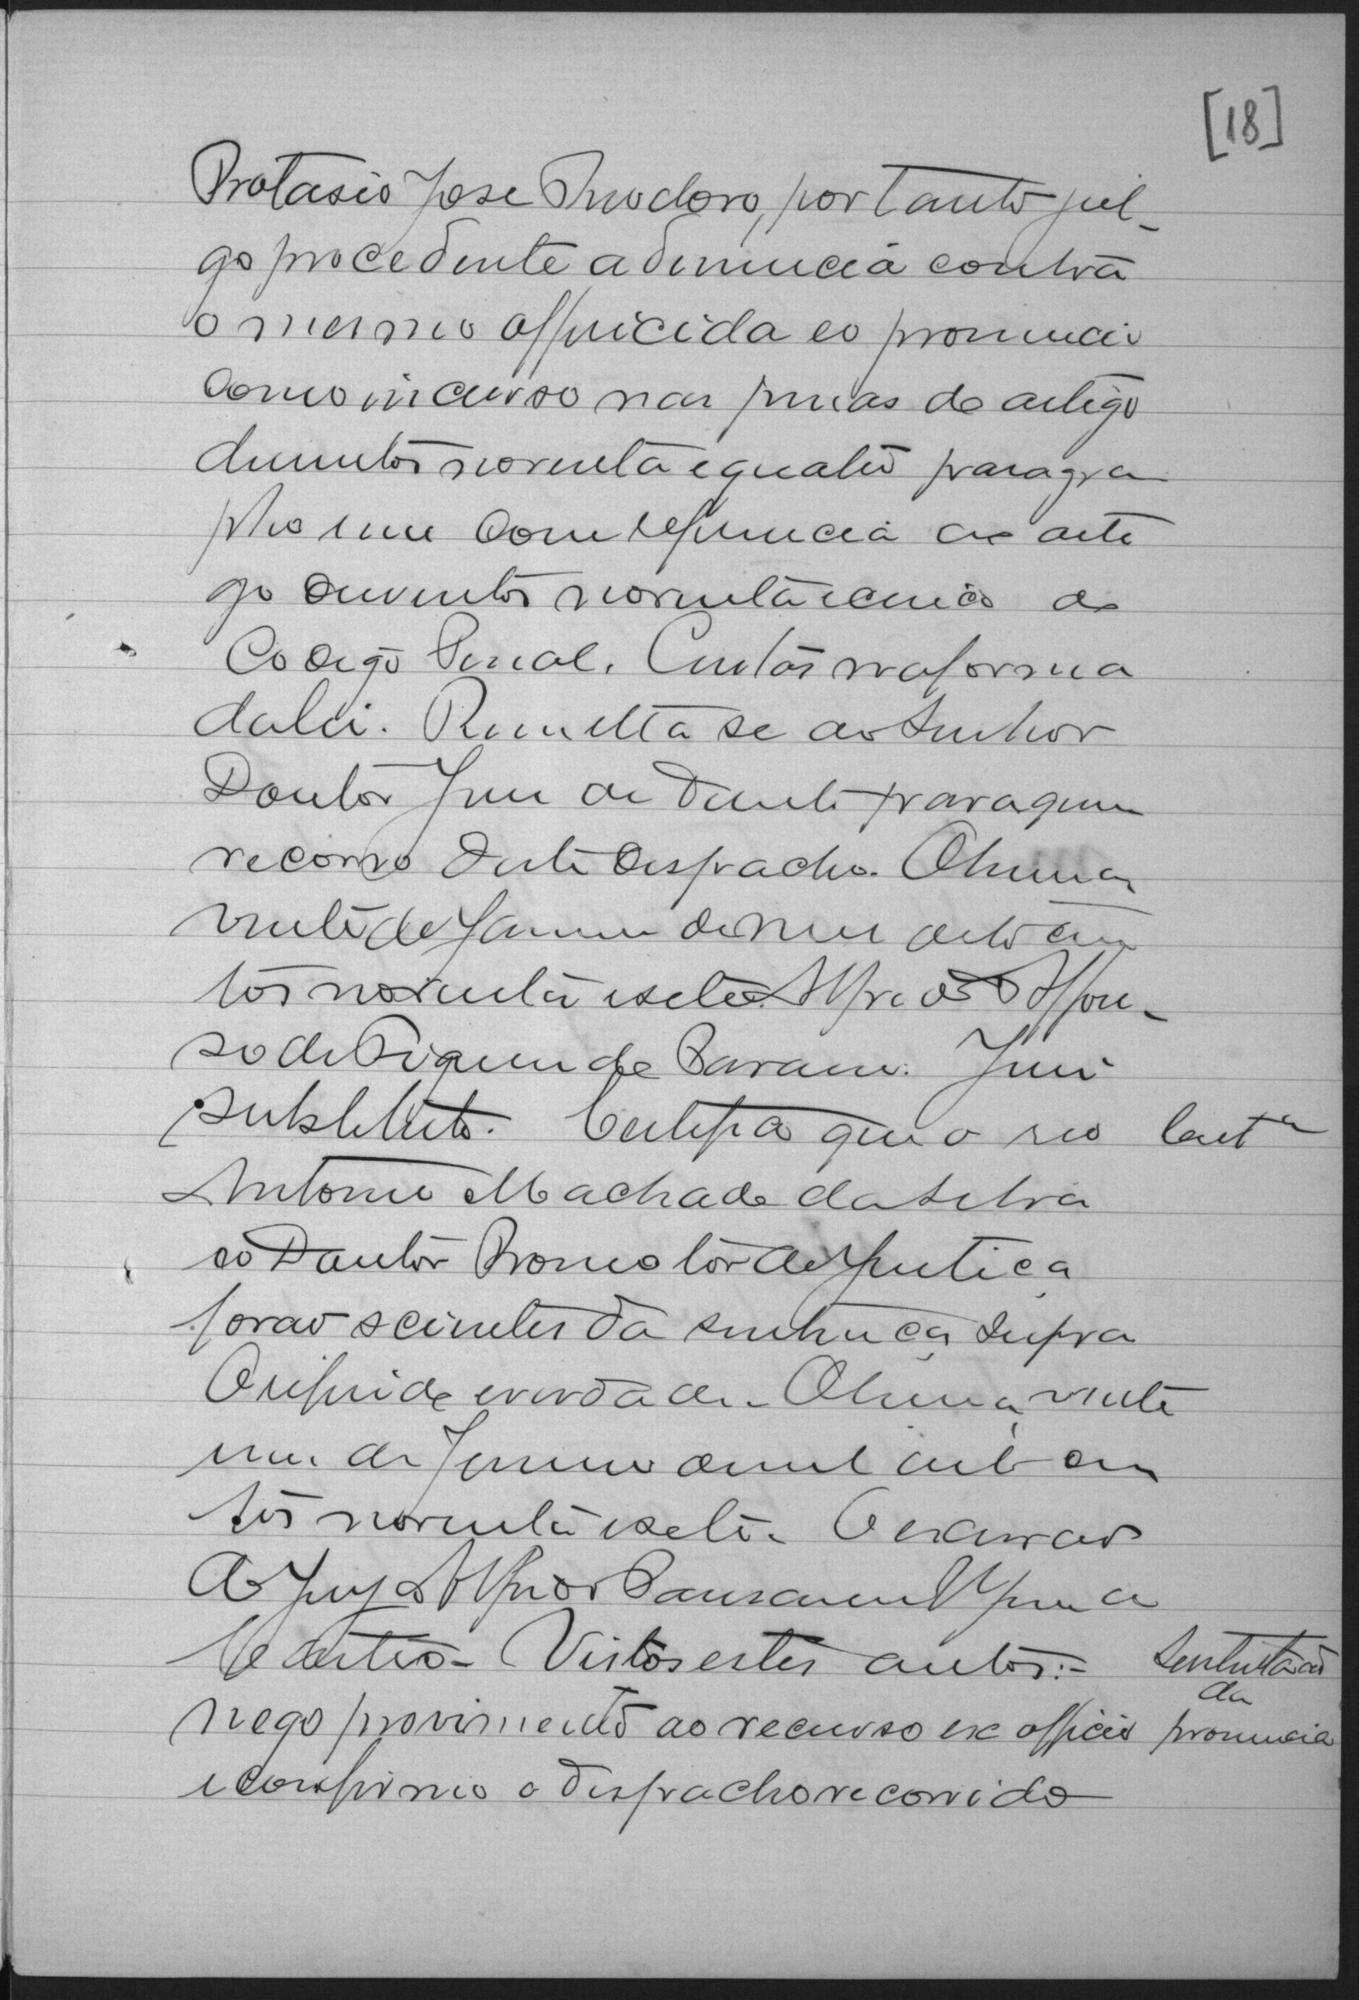 [18]
Protasio Jose Theodoro, por tanto jul-
go procedente a denuncia contra
o mesmo appricida e o pronuncio
como incurso nas penas do artigo
dusentos noventa e quatro paragra
pho um com referencia ao arti
go dusentos noventa e cinco do
Codigo Penal. Custas na forma
da lei. Remetta se ao Senhor
Doutor Juiz de Direito para quem
recorro deste despacho. Cunha
vinte de Janeiro de mil oito cen
tos noventa e sete. Alfredo Affon-
so de Figueiredo Parana. Juiz
substituto. Certifico que o reo Certᵃ
Antonio Machado da Silva
e o Doutor Promotor de Justiça
forão scientes da sentença supra
O referido é verdade. Cunha, vinte
um de Janeiro de mil oito cen
tos noventa e sete. O escrivão
do Jury Alfredo
Castro - Vistos estes autos:- Sustentação
da
nego provimento ao recurso ex officio pronuncia
e confirmo o despacho recorrido